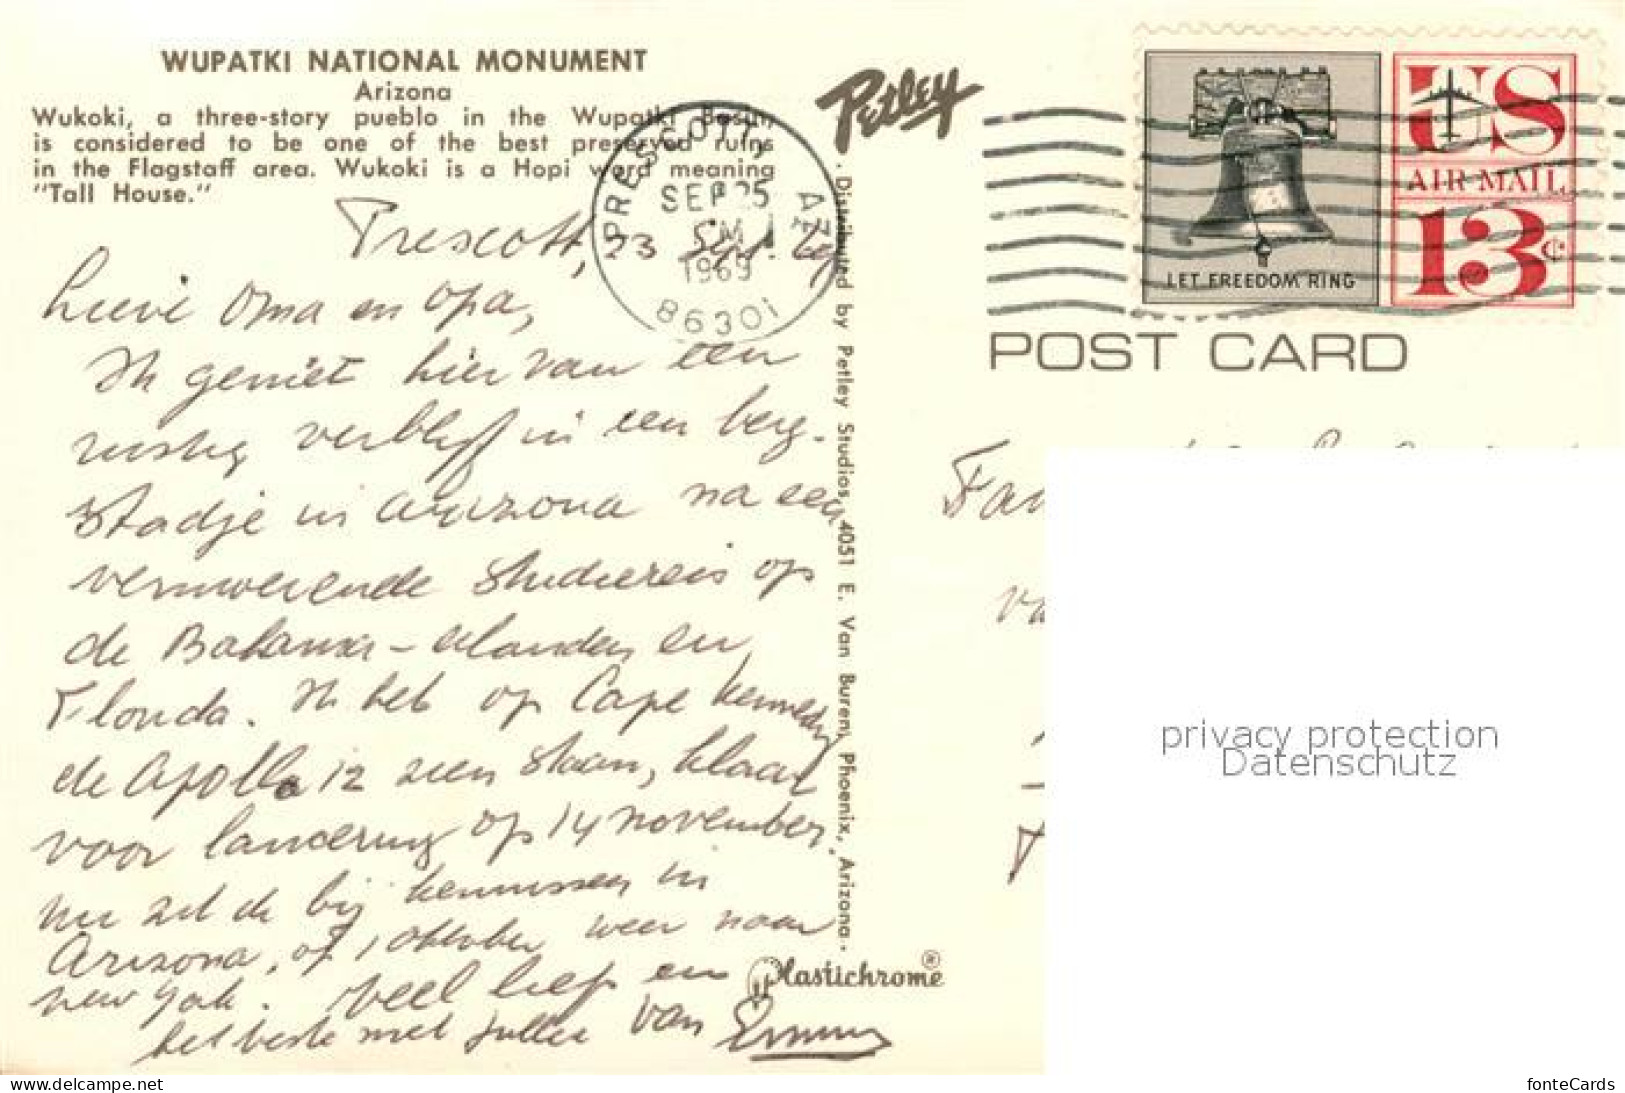 WUPATKI NATIONAL MONUMENT
Arizona
Wukoki, a three-story pueblo in the Wupatki Basin,
is considered to be one of the best preserved ruins
in the Flagstaff area. Wukoki is a Hopi word meaning
"Tall House."
Prescott, 23 Sept. 69
Lieve Oma en Opa,
Ik geniet hier van een
rustig verblijf in een berg-
stadje in Arizona na een
vermoeiende studiereis op
de Bahama-eilanden en
Florida. Ik heb op Cape Kennedy
de Apollo 12 zien staan, klaar
voor lancering op 14 november.
Nu zit ik bij kennissen in
Arizona, op 1 oktober weer naar
New York. Veel liefs en
het beste met jullie van
PRESCOTT, AZ
SEP 25
PM
1969
86301
Petley
. Distributed by Petley Studios, 4051 E. Van Buren, Phoenix, Arizona.
Plastichrome®
LET FREEDOM RING
US
AIR MAIL
13¢
POST CARD
Fam
privacy protection
Datenschutz
www.delcampe.net
fonteCards